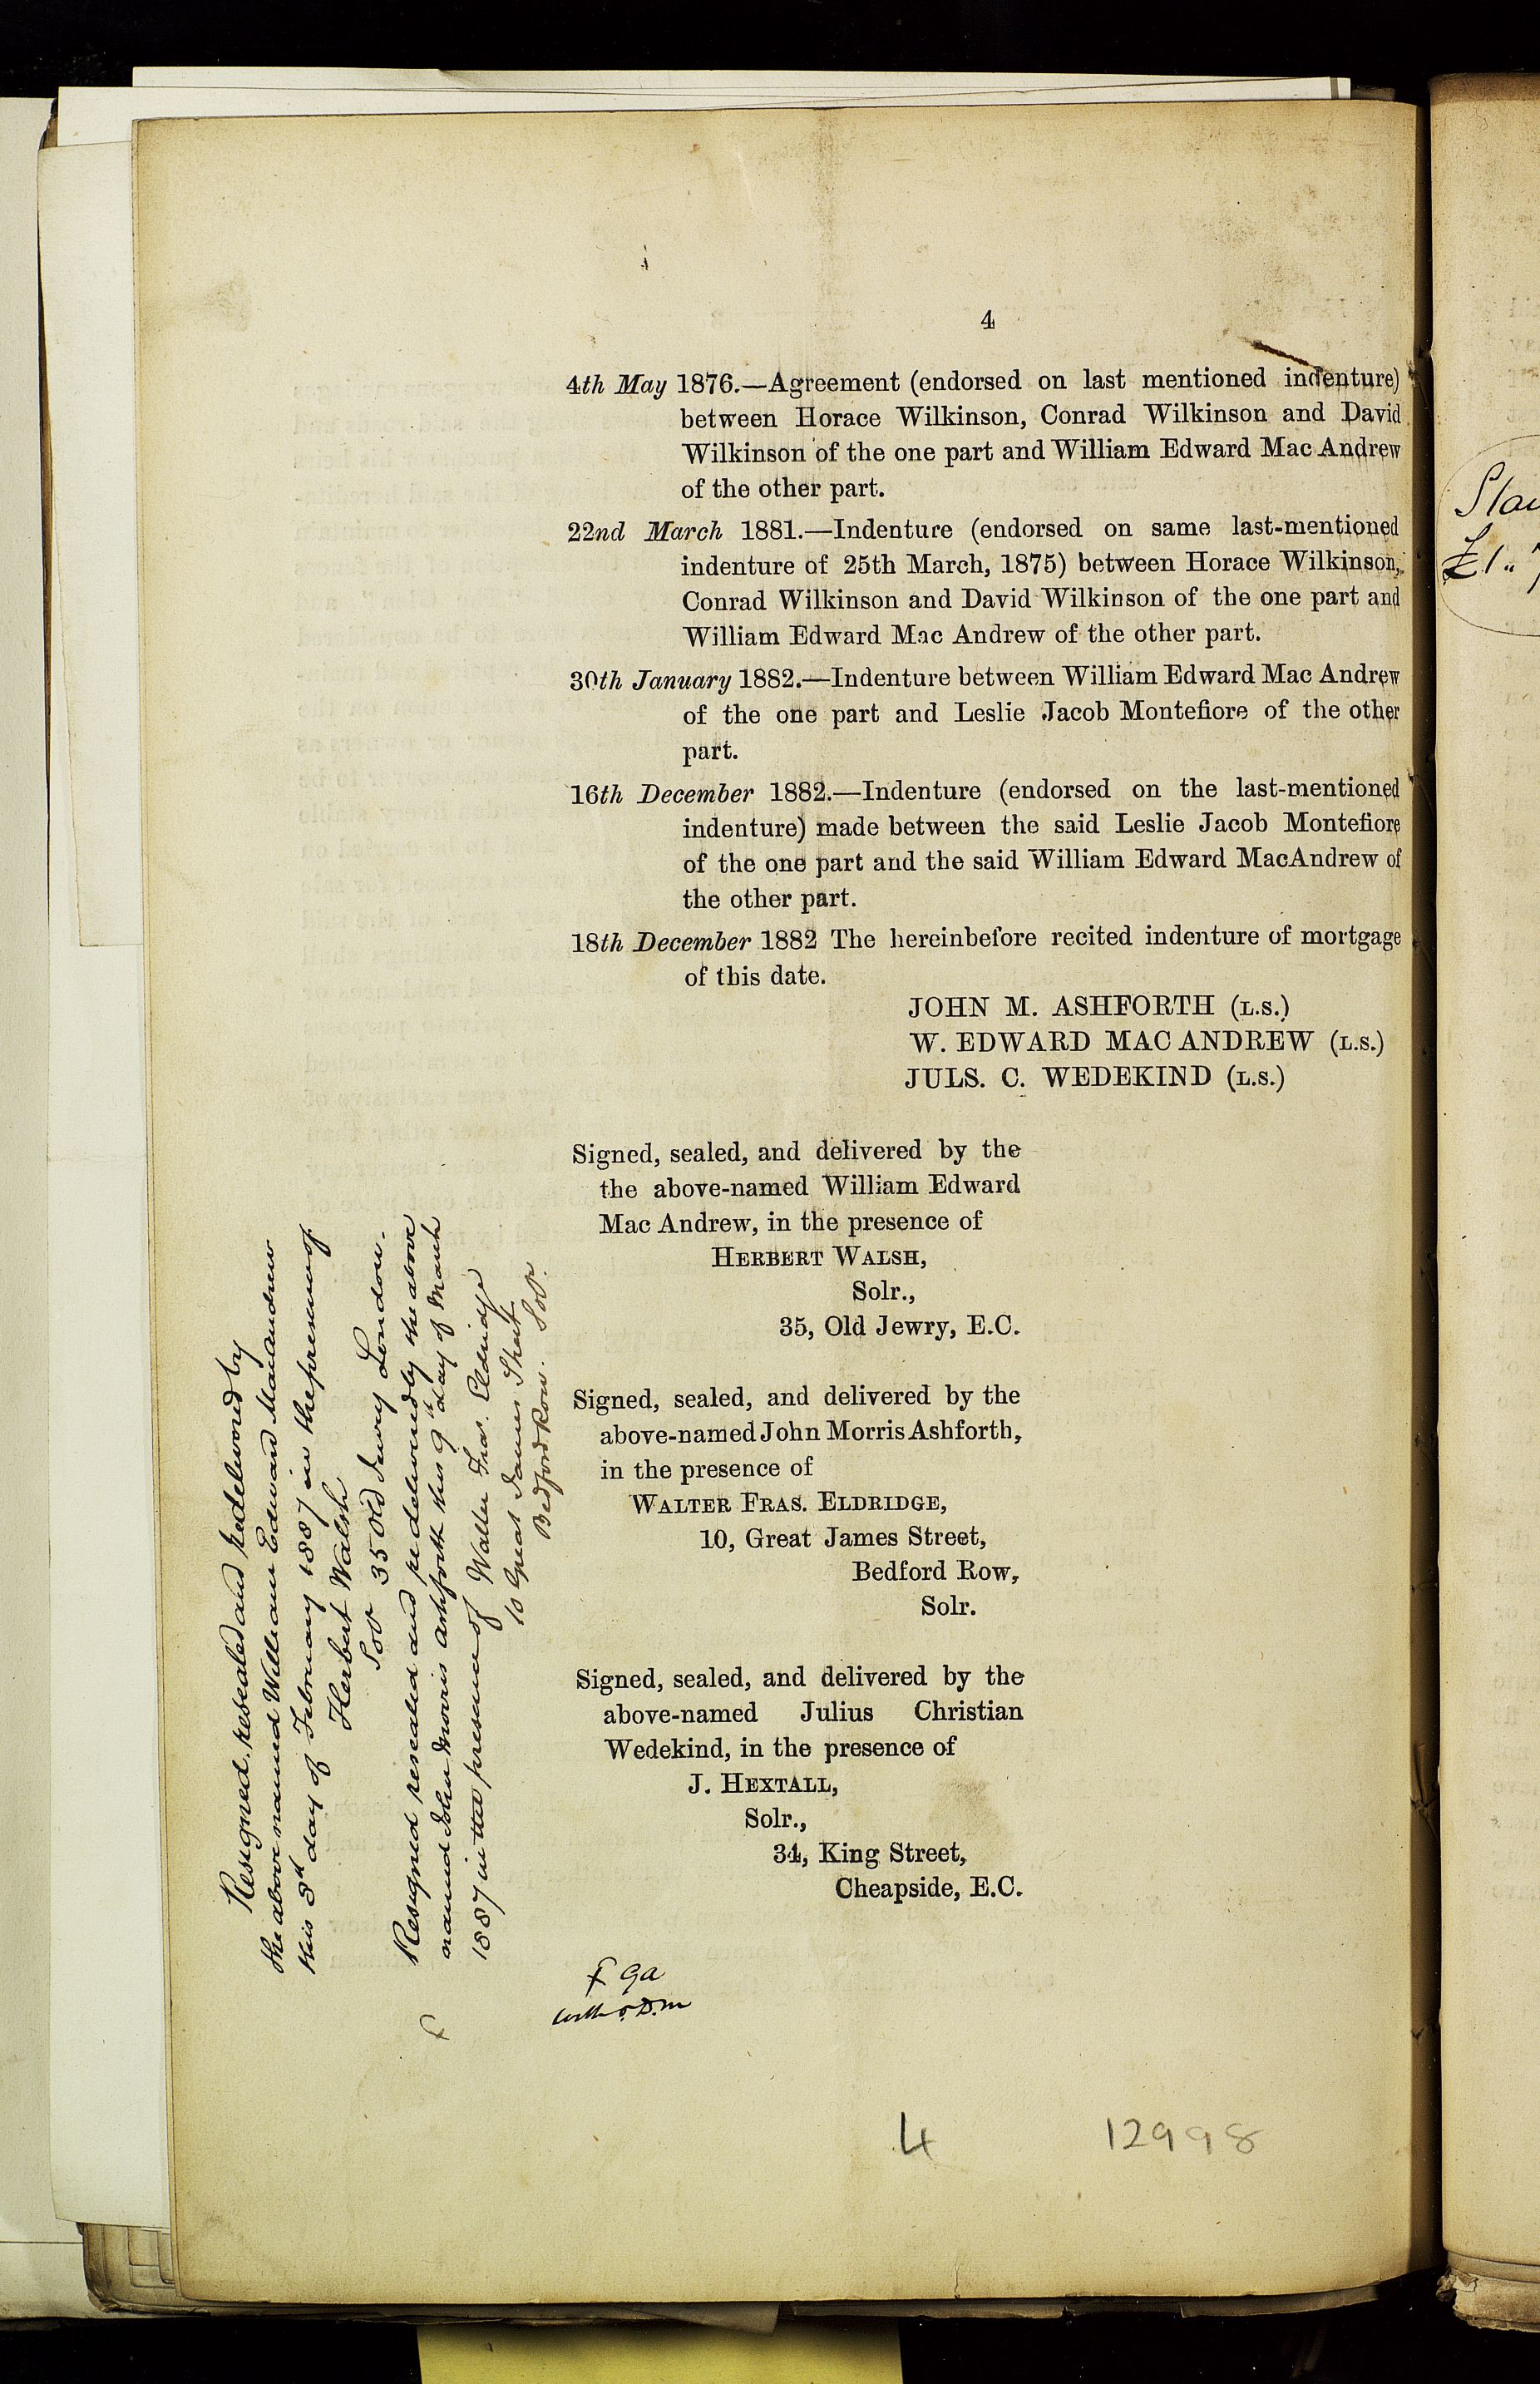 4
4th May 1876.—Agreement (endorsed on last mentioned indenture)
between Horace Wilkinson, Conrad Wilkinson and David
Wilkinson of the one part and William Edward Mac Andrew
of the other part.
22nd March 1881.—Indenture (endorsed on same last-mentioned
indenture of 25th March, 1875) between Horace Wilkinson,
Conrad Wilkinson and David Wilkinson of the one part and
William Edward Mac Andrew of the other part.
30th January 1882.—Indenture between William Edward Mac Andrew
of the one part and Leslie Jacob Montefiore of the other
part.
16th December 1882.—Indenture (endorsed on the last-mentioned
indenture) made between the said Leslie Jacob Montefiore
of the one part and the said William Edward MacAndrew of
the other part.
18th December 1882 The hereinbefore recited indenture of mortgage
of this date.
JOHN M. ASHFORTH (L.S.)
W. EDWARD MAC ANDREW (L.S.)
JULS. C. WEDEKIND (L.S.)
Signed, sealed, and delivered by the
the above-named William Edward
Mac Andrew, in the presence of
HERBERT WALSH,
Solr.,
35, Old Jewry, E.C.
Signed, sealed, and delivered by the
above-named John Morris Ashforth,
in the presence of
WALTER FRAS. ELDRIDGE,
10, Great James Street,
Bedford Row,
Solr.
Signed, sealed, and delivered by the
above-named Julius Christian
Wedekind, in the presence of
J. HEXTALL,
Solr.,
34, King Street,
Cheapside, E.C.
Resigned, resealed and redelivered by
the above named William Edward MacAndrew
this 3rd day of February 1887 in the presence of
Herbert Walsh
Solr 35 Old Jewry London.
Resigned resealed and redelivered by the above
named John Morris Ashforth this 9th day of March
1887 in the presence of Walter Fras. Eldridge
10 Great James Street
Bedford Row. Solr.
4
12998